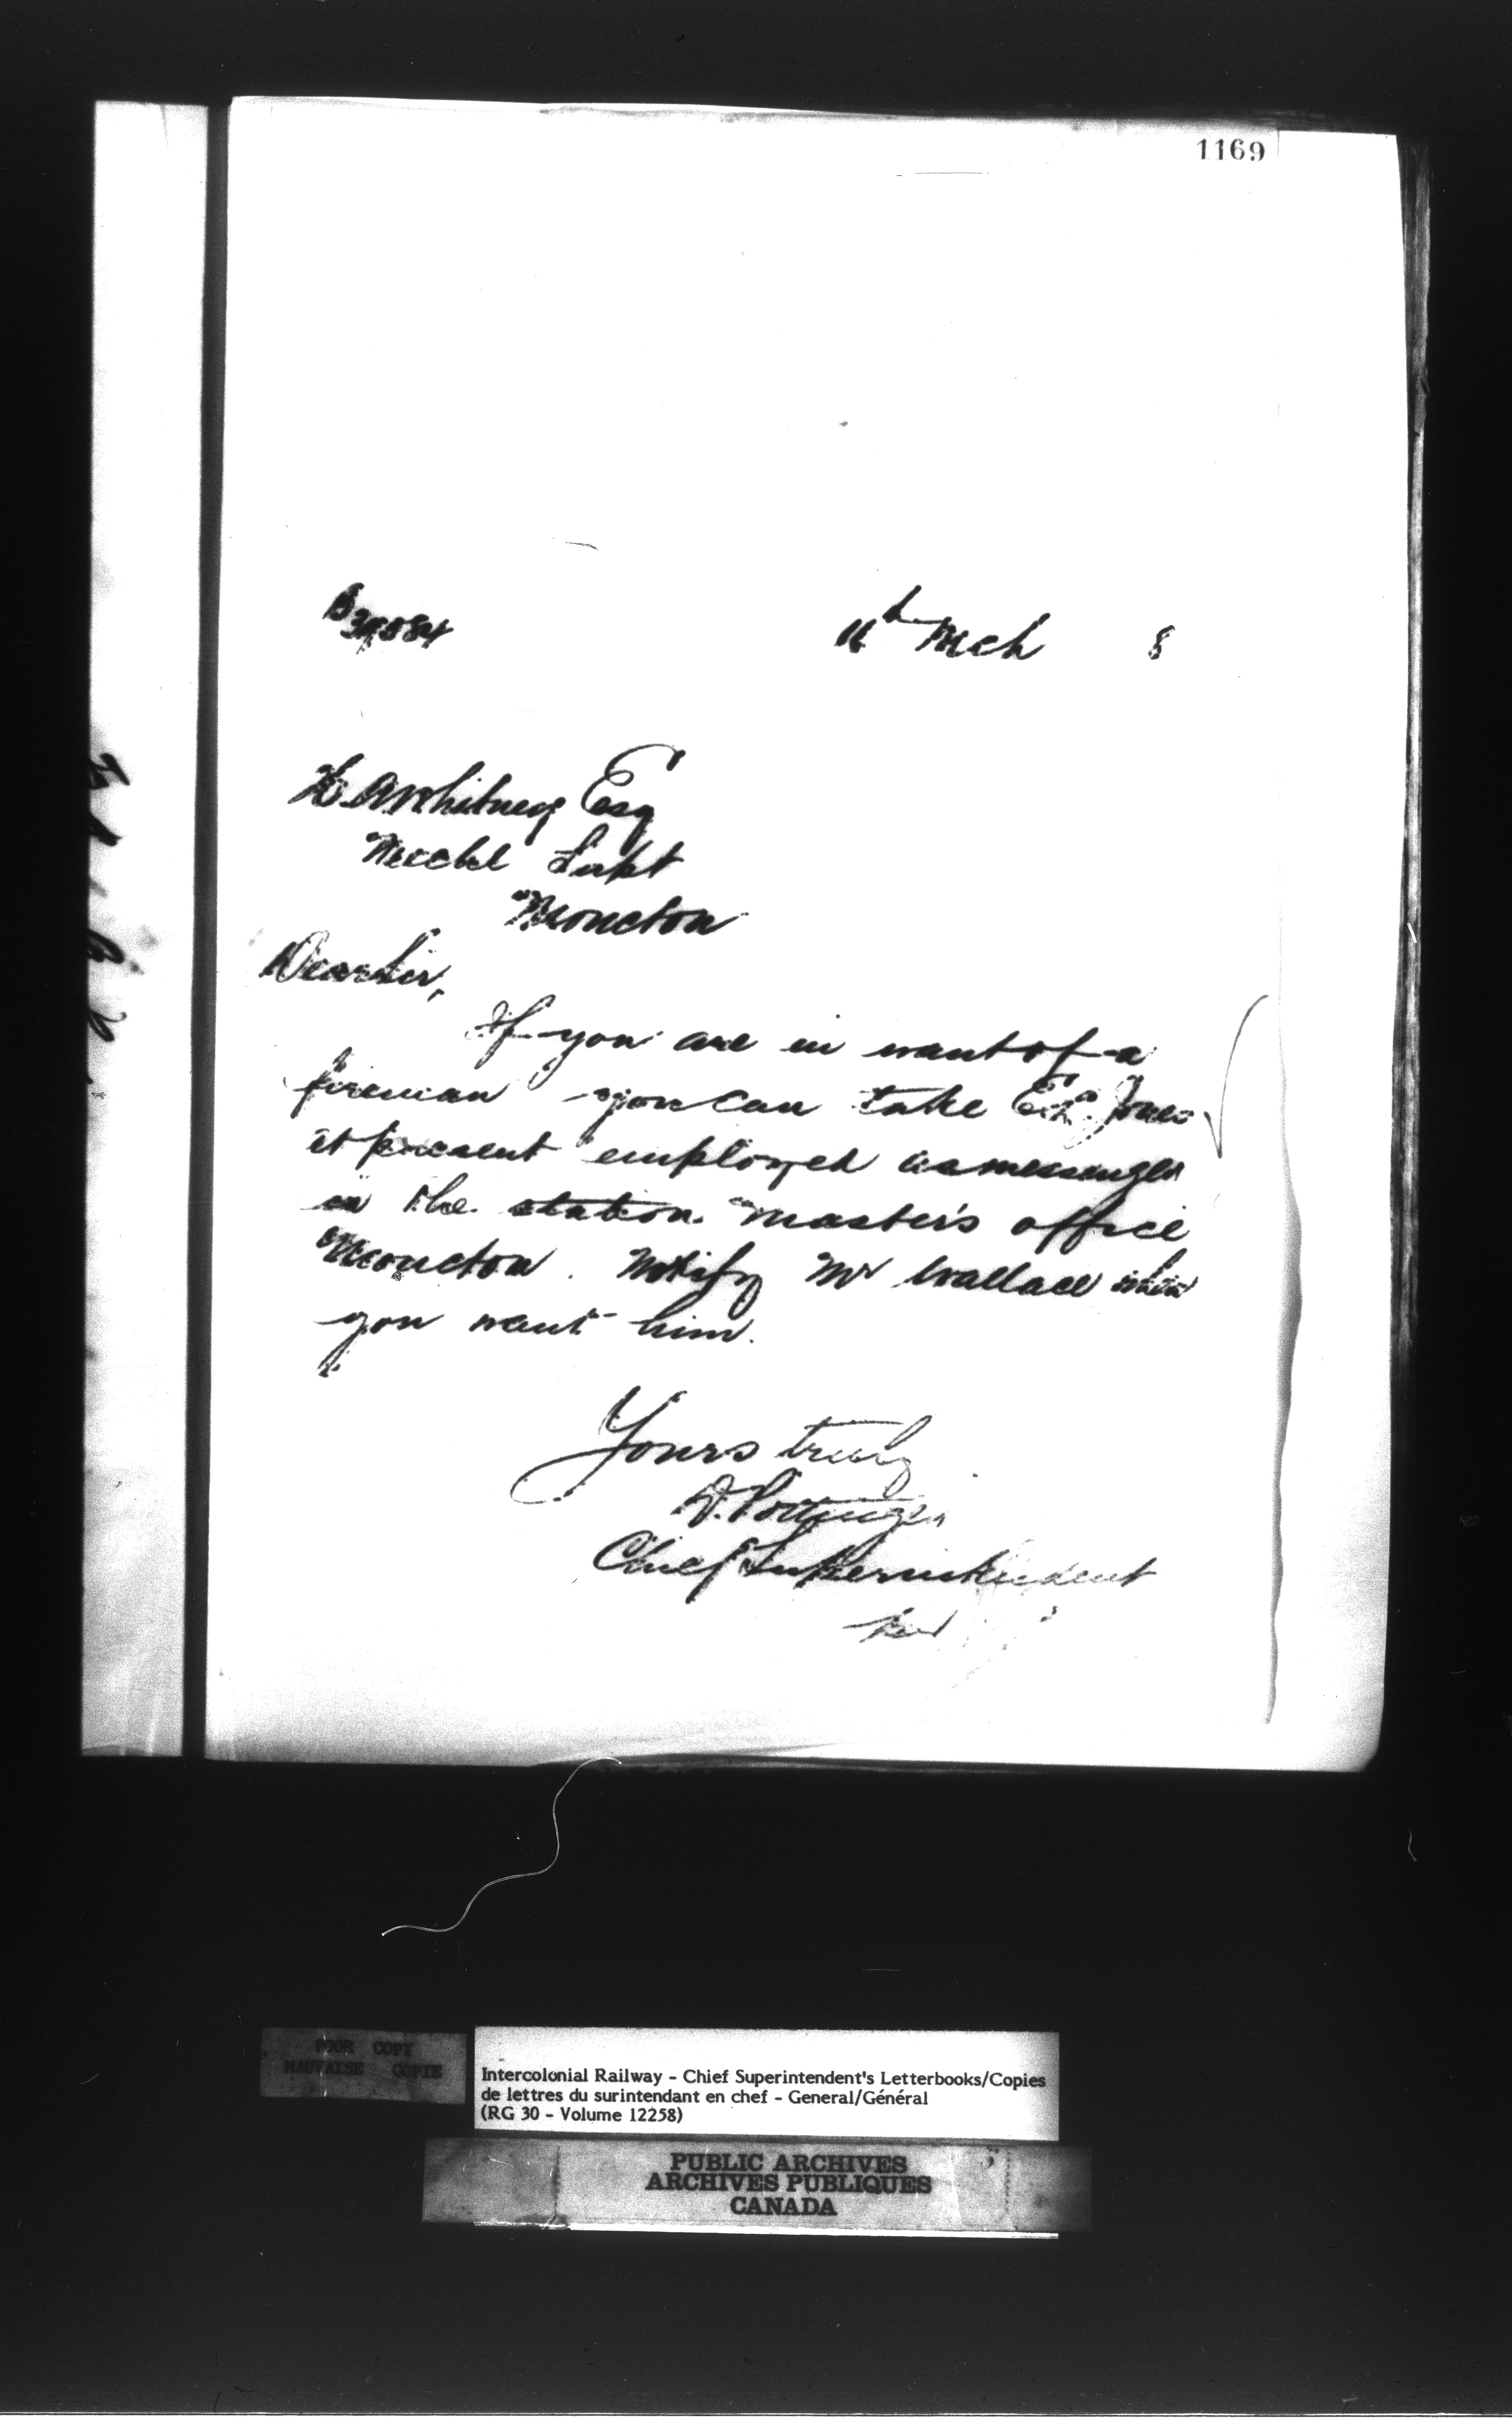 1169
11th Mch 8
H. A. Whitney Esq
Mechl Supt
Moncton
Dear Sir,
If you are in want of a
fireman you can take E. Jones
at present employed as messenger
in the station master's office
Moncton. Notify Mr Wallace when
you want him.
Yours truly
D. Pottinger
Chief Superintendent
POOR COPY
MAUVAISE COPIE
Intercolonial Railway - Chief Superintendent's Letterbooks/Copies
de lettres du surintendant en chef - General/Général
(RG 30 - Volume 12258)
PUBLIC ARCHIVES
ARCHIVES PUBLIQUES
CANADA